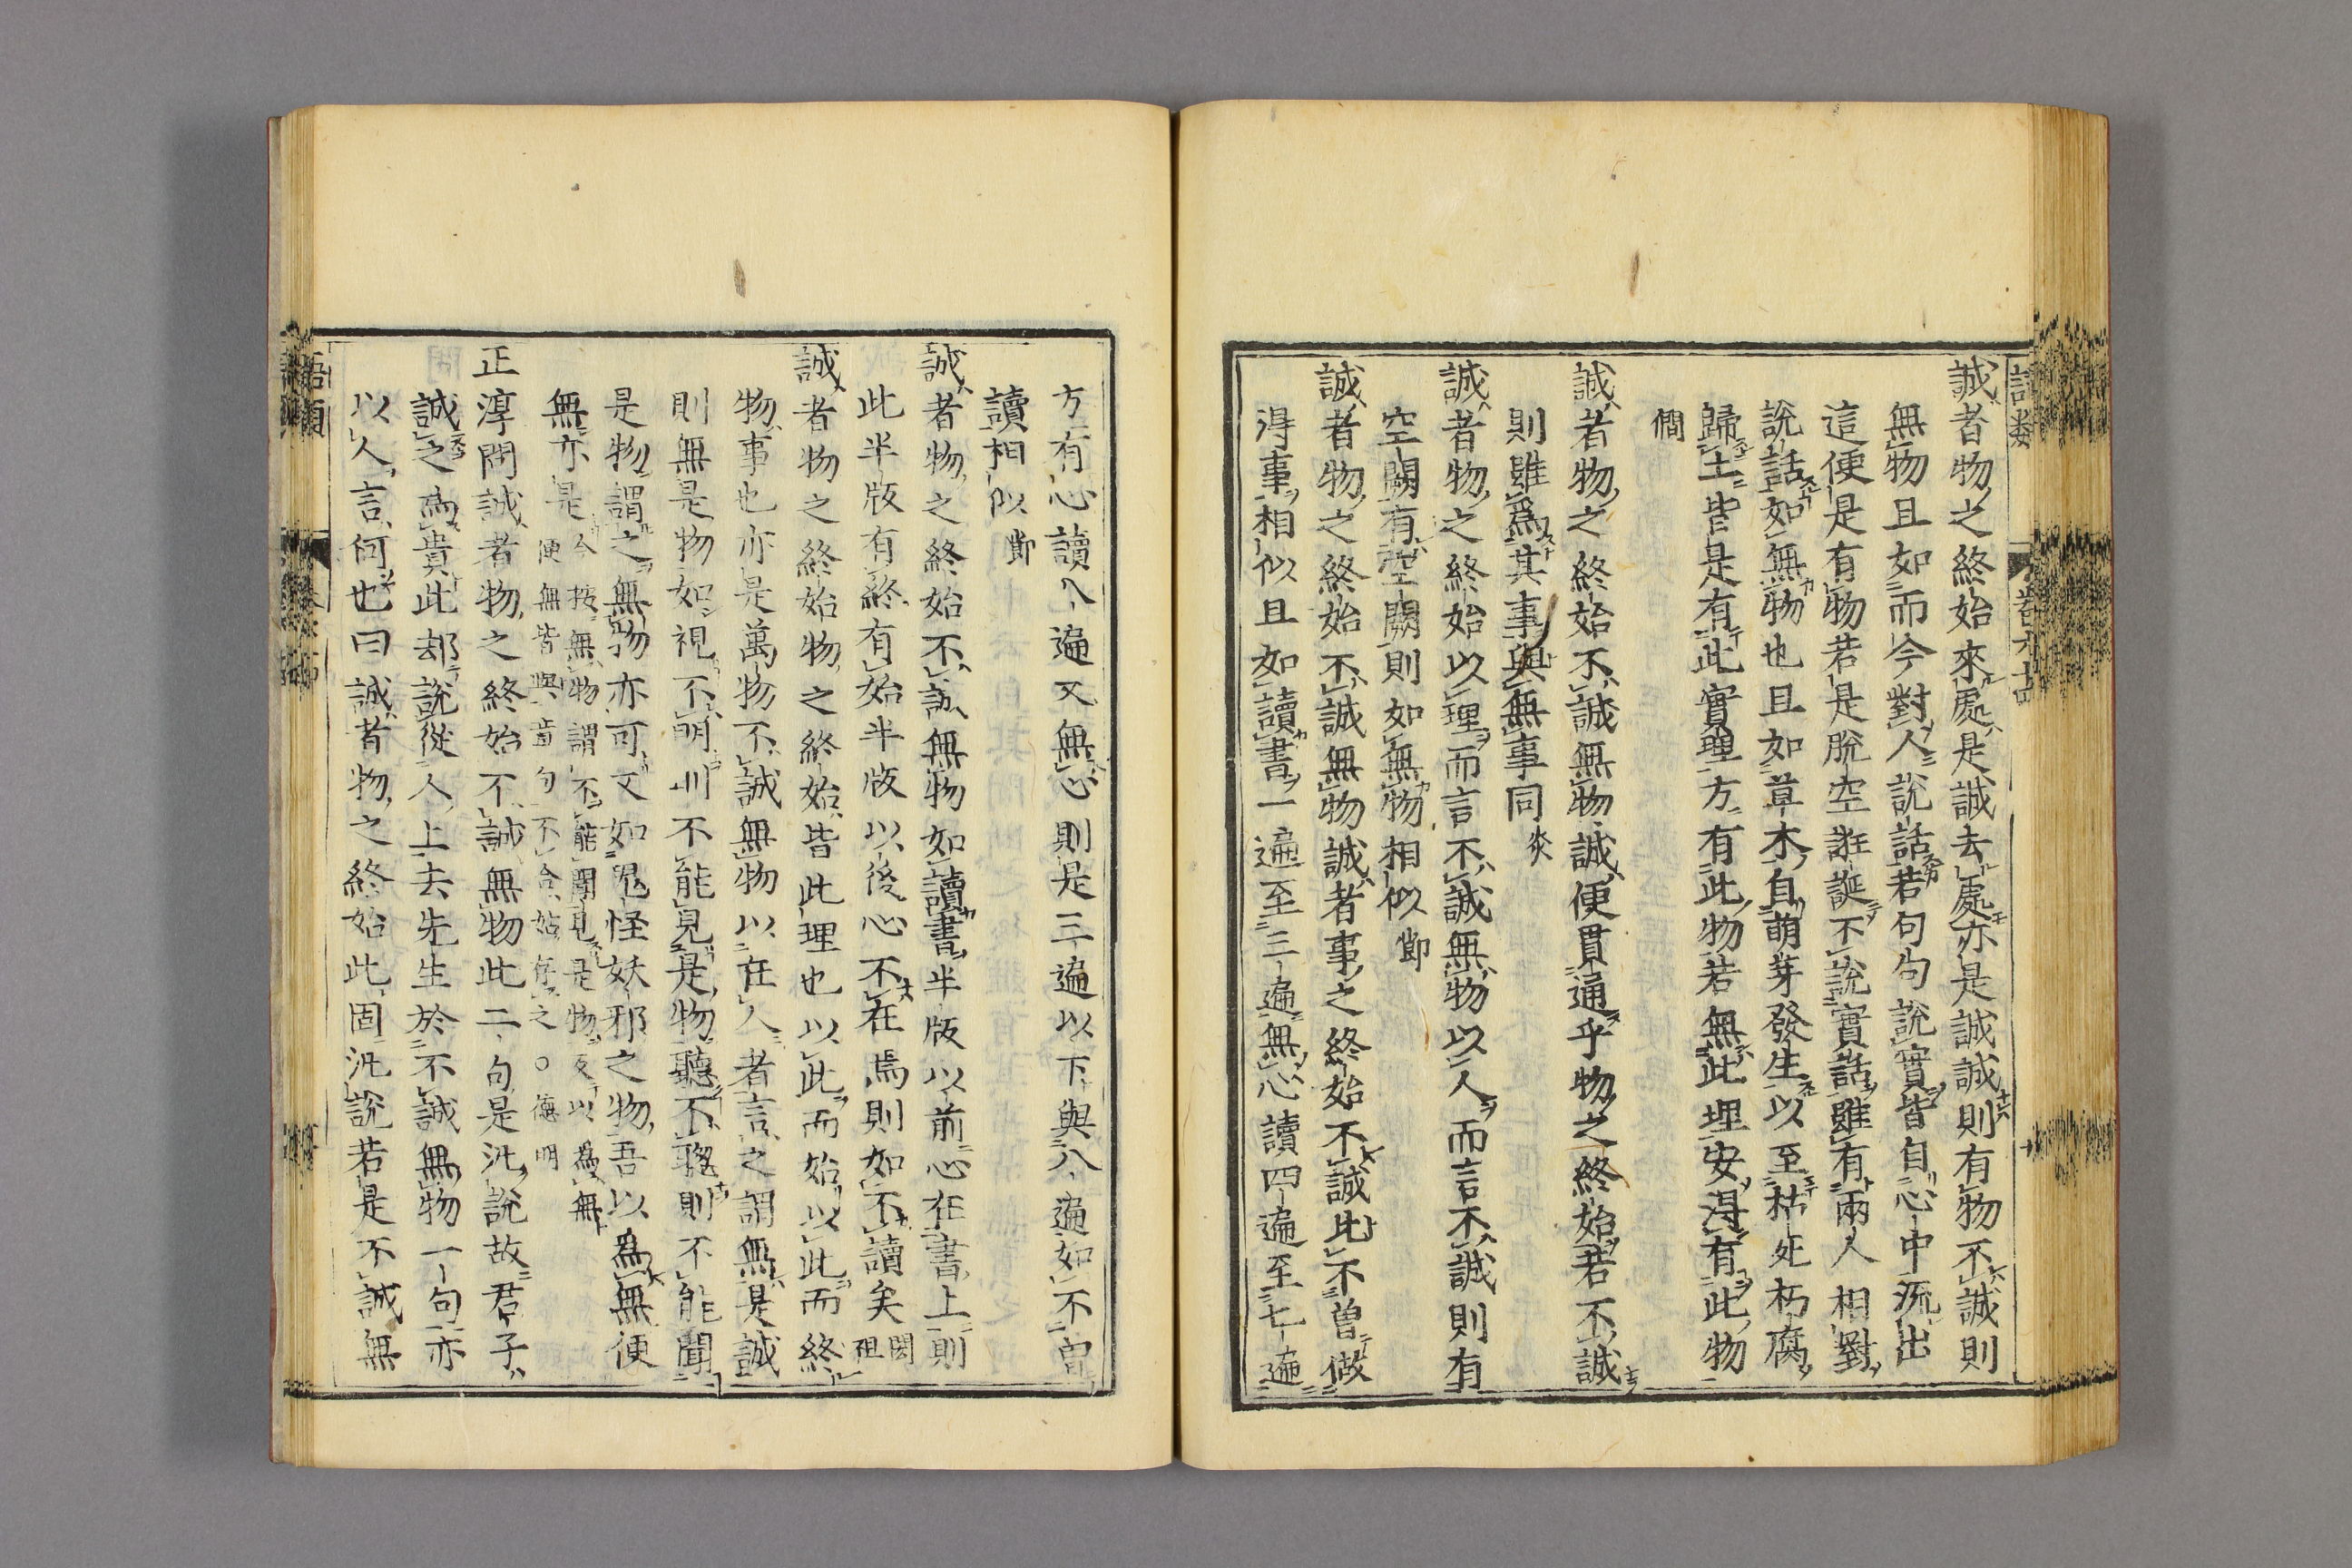 誠者物之終始來處是誠去處亦是誠誠則有物不誠則
無物且如而今對人說話若句句說實皆自心中流出
這便是有物若是脫空誑誕不說實話雖有兩人相對
說話如無物也且如草木自萌芽發生以至枯死朽腐
歸土皆是有此實理方有此物若無此理安得有此物
僩
誠者物之終始不誠無物誠便貫通乎物之終始若不誠
則雖爲其事與無事同 炎
誠者物之終始以理而言不誠無物以人而言不誠則有
空闕有空闕則如無物相似 節
誠者物之終始不誠無物誠者事之終始不誠比不曾做
得事相似且如讀書一遍至三遍無心讀四遍至七遍
方有心讀八遍又無心則是三遍以下與八遍如不曾
讀相似 節
誠者物之終始不誠無物如讀書半版以前心在書上則
此半版有終有始半版以後心不在焉則如不讀矣 閎祖
誠者物之終始物之終始皆此理也以此而始以此而終
物事也亦是萬物不誠無物以在人者言之謂無是誠
則無是物如視不明則不能見是物聽不聰則不能聞
是物謂之無物亦可又如鬼怪妖邪之物吾以爲無便
無亦是 今按無物謂不能聞見是物及以爲無
便無皆與章句不合姑存之○德明
正淳問誠者物之終始不誠無物此二句是汎說故君子
誠之爲貴此却說從人上去先生於不誠無物一句亦
以人言何也曰誠者物之終始此固汎說若是不誠無
語類